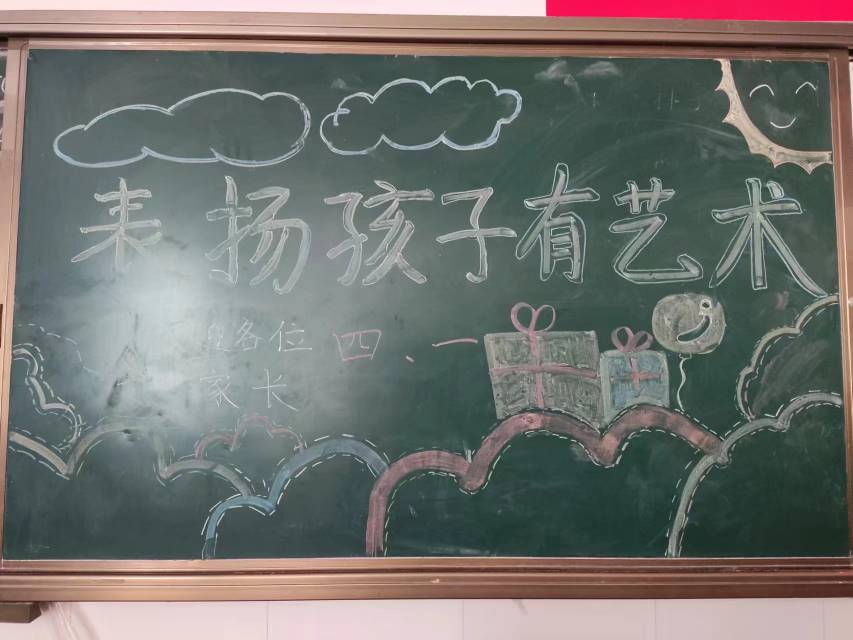 表扬孩子有艺术
各位
家长
四、一